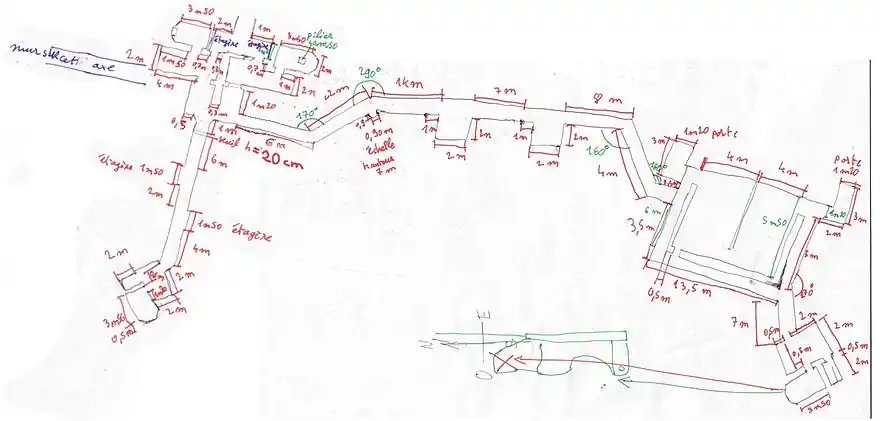 3m50
2m
étagère
étagère
1m
3m50
pilier
2m
1m50
0,7m
0,7m
2m
4m
2m
1m20
0,5
1m
seuil h = 20 cm
6m
6m
170°
2m
290°
1km
7m
8m
0,90m
échelle
hauteur
7m
1m
2m
2m
1m
2m
2m
160°
4m
3m
1m20 porte
4m
4m
porte
1m20
3m
2m
6m
3,5m
5m50
0,5m
13,5m
7m
0,5m
2m
2m
0,5m
2m
0,5m
3m50
étagère 1m50
2m
1m50 étagère
4m
2m
2m
1m20
2m
3m50
0,5m
E
N
O